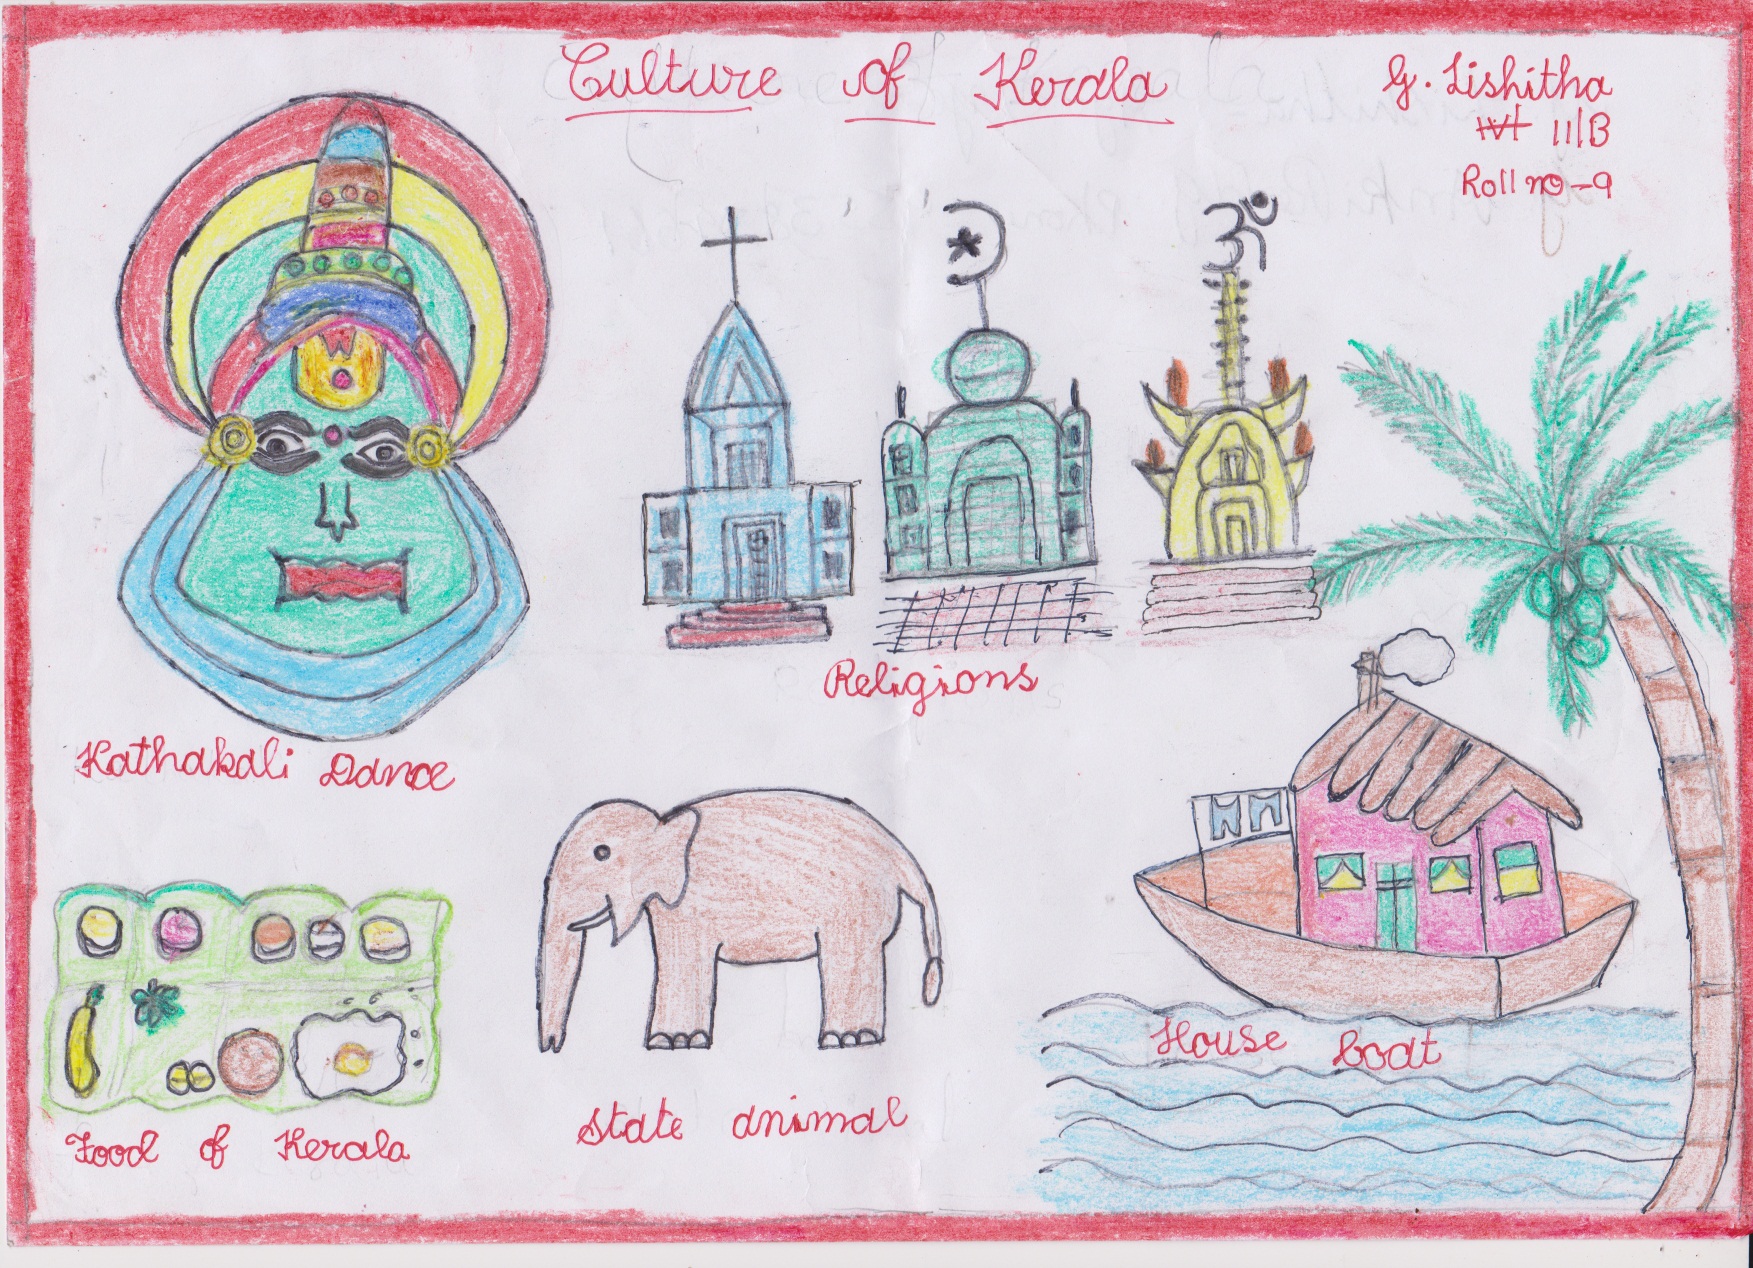 Culture of Kerala
G. Lishitha
III/B
Roll no-9
Religions
Kathakali Dance
House boat
State animal
Food of Kerala